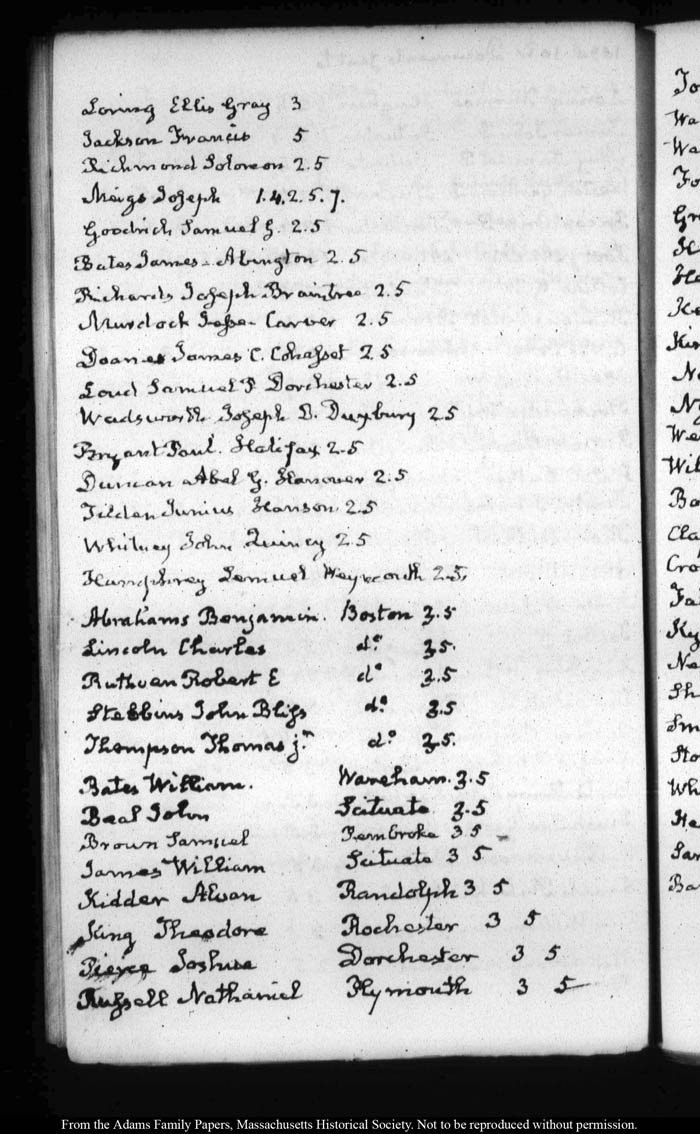 Loring Ellis Gray 3
Jackson Francis 5
Richmond Solomon 2.5
Meigs Joseph 1.4.2.5.7.
Goodrich Samuel G. 2.5
Bates James. Abington 2.5
Richards Joseph. Braintree 2.5
Murdock Jesse. Carver 2.5
Doane James C. Cohasset 2 5
Loud Samuel P Dorchester 2.5
Wadsworth Joseph D. Duxbury 2 5
Bryant Paul. Halifax 2.5
Duncan Abel G. Hanover 2.5
Tilden Junius Hanson 2.5
Whitney John Quincy 2 5
Humphrey Lemuel Weymouth 2.5,
Abrahams Benjamin. Boston 3.5
Lincoln Charles do. 3.5.
Ruthven Robert E do 3.5
Stebbins John Bliss do. 3.5
Thompson Thomas jr. do. 3.5.
Bates William. Wareham. 3.5
Beal John Scituate 3.5
Brown Samuel Pembroke 3.5
James William Scituate 3 5
Kidder Alvan Randolph 3 5
King Theodore Rochester 3 5
Pierce Joshua Dorchester 3 5
Russell Nathaniel Plymouth 3 5
To
Wa
Wa
Fo
Gr
H
Ho
Ke
Kin
No
Ny
We
Wil
Ba
Cla
Cro
Fa
Ky
Ne
Sh
Sm
Sto
Wh
He
Sar
Ba
From the Adams Family Papers, Massachusetts Historical Society. Not to be reproduced without permission.